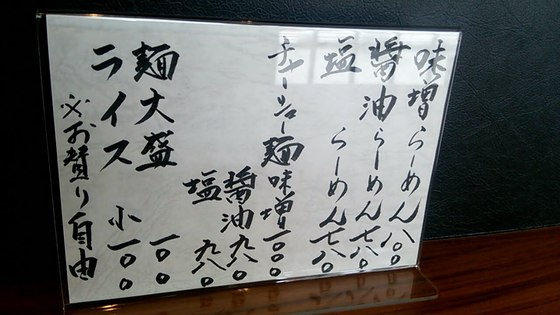 味増らーめん八〇〇
醤油らーめん七八〇
塩らーめん七八〇
チャーシュー麺味増一〇〇〇
醤油九八〇
塩九八〇
麺大盛一〇〇
ライス小一〇〇
※お替り自由